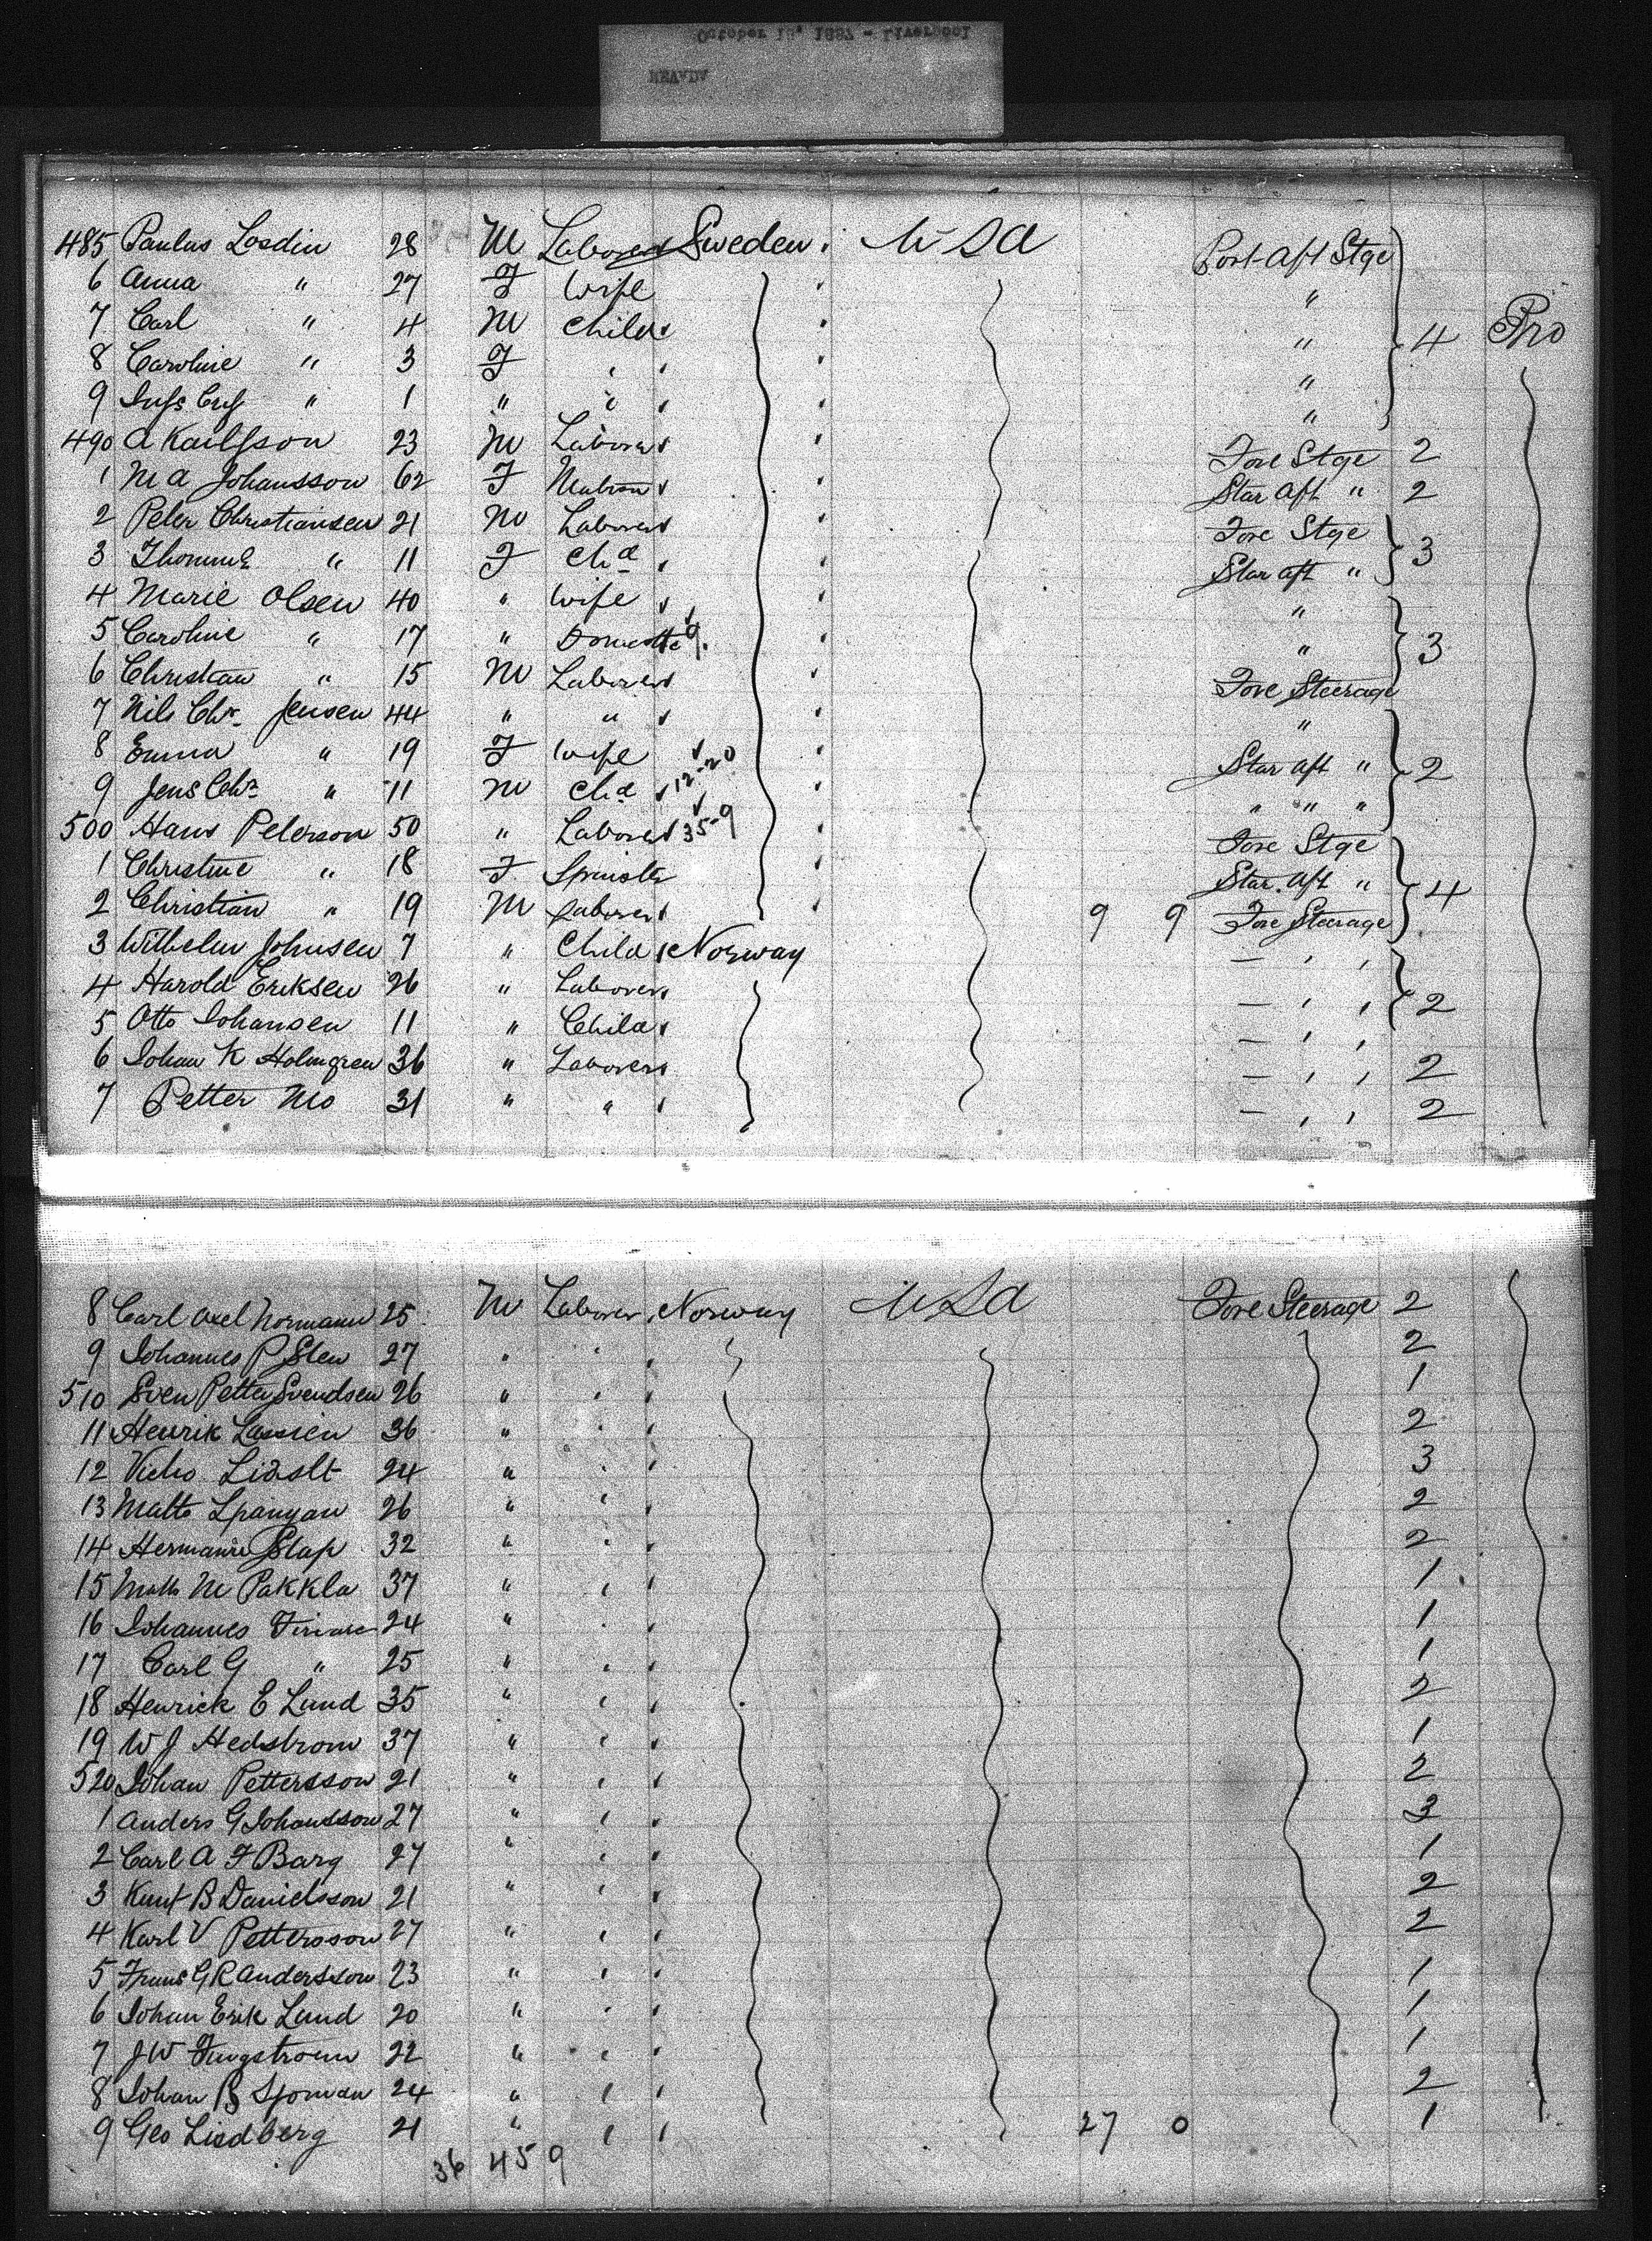 October 13, 1887 - Liverpool
NEVADA
485 Paulus Losdin 28 M Laborer Sweden U S A Port Aft Stge
6 Anna " 27 F Wife "
7 Carl " 4 M Child " 4 Pro
8 Caroline " 3 F " "
9 " 1 " " "
490 A Karlsson 23 M Laborer Fore Stge 2
1 M A Johansson 62 F Matron Star Aft " 2
2 Peter Christiansen 21 M Laborer Fore Stge 3
3 " 11 F Chd Star aft "
4 Marie Olsen 40 " Wife "
5 Caroline " 17 " Domestic 9. " 3
6 Christian " 15 M Laborer Fore Steerage
7 Nils Chr. Jensen 44 " " "
8 Emma " 19 F Wife 12-20 Star aft " 2
9 Jens Chr. " 11 M Chd " " "
500 Hans Peterson 50 " Laborer 35-9 Fore Stge
1 Christine " 18 F Spinster Star. Aft " 4
2 Christian " 19 M Laborer 9 9 Fore Steerage
3 Wilhelm Johnsen 7 " Child Norway — " "
4 Harold Eriksen 26 " Laborer — " " 2
5 Otto Johansen 11 " Child — " "
6 Johan K Holmgren 36 " Laborer — " " 2
7 Petter Mo 31 " " — " " 2
8 Carl Axel Normann 25 M Laborer Norway U S A Fore Steerage 2
9 Johannes P Sten 27 " " 2
510 Sven Petter Svendsen 26 " " 1
11 Henrik Lassien 36 " " 2
12 24 " " 3
13 Matts 26 " " 2
14 32 " " 2
15 Matts M Pakkla 37 " " 1
16 Johannes 24 " " 1
17 Carl G " 25 " " 1
18 Henrick E Lund 35 " " 2
19 W J Hedstrom 37 " " 1
520 Johan Pettersson 21 " " 2
1 Anders G Johansson 27 " " 3
2 Carl A F Barg 27 " " 1
3 Knut B Danielsson 21 " " 2
4 Karl V Pettersson 27 " " 2
5 Frans G R Andersson 23 " " 1
6 Johan Erik Lund 20 " " 1
7 J W 22 " " 1
8 Johan B Sjoman 24 " " 2
9 Geo Lindberg 21 " " 27 0 1
36 45 9